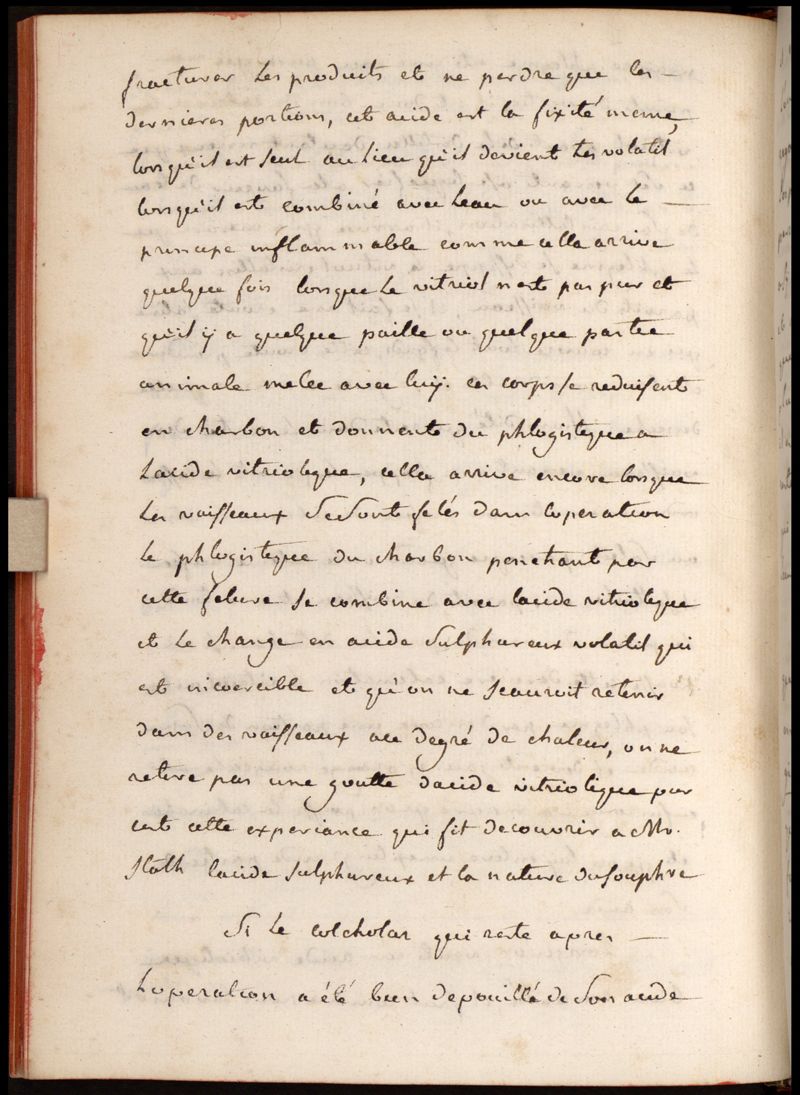 fracturer les produits et ne perdre que les —
dernieres portions, cet acide est la fixité meme,
lorsqu'il est seul au lieu qu'il devient tres volatil
lorsqu'il est combiné avec leau ou avec le —
principe inflammable comme cella arrive
quelque fois lorsque le vitriol n'est pas pur et
qu'il ÿ a quelque paille ou quelque partie
animale melee avec luÿ. ces corps se reduisent
en charbon et donnent du phlogistique a
lacide vitriolique, cella arrive encore lorsque
les vaisseaux se sont felés dans loperation
le phlogistique du charbon penetrant par
cette felure se combine avec lacide vitriolique
et le change en acide sulphureux volatil qui
est incoercible et qu'on ne scauroit retenir
dans des vaisseaux au degré de chaleur, on ne
retire pas une goutte dacide vitriolique par
cest cette experiance qui fit decouvrir a Mr.
Stalh lacide sulphureux et la nature du souphre
Si le colcholar qui reste apres —
loperation a été bien depouillé de son acide